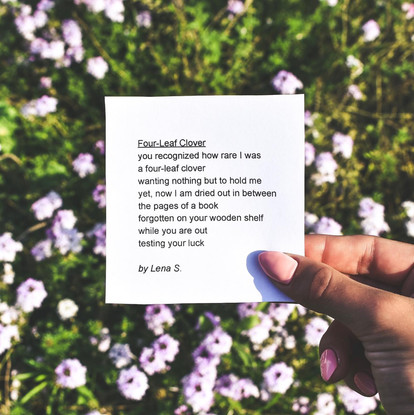 Four-Leaf Clover
you recognized how rare I was
a four-leaf clover
wanting nothing but to hold me
yet, now I am dried out in between
the pages of a book
forgotten on your wooden shelf
while you are out
testing your luck
by Lena S.